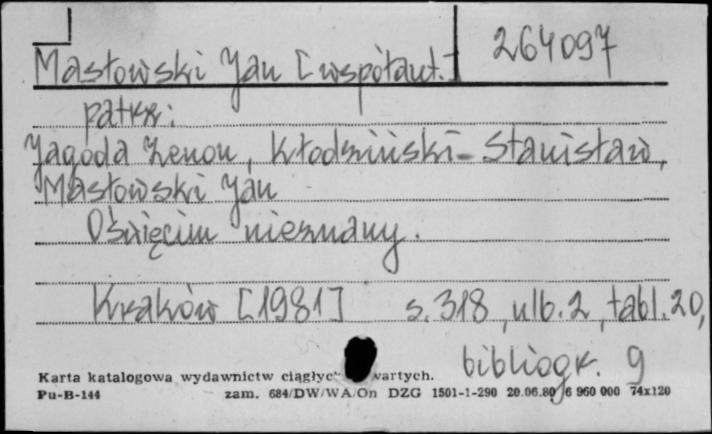 Masłowski Jan [współaut.] 264097
patrz:
Jagoda Zenon, Kłodziński Stanisław,
Masłowski Jan
Oświęcim nieznany.
Kraków [1981] s. 318, ulb. 2, tabl. 20,
bibliogr. 9
Karta katalogowa wydawnictw ciągłyc wartych.
Pu-B-144 zam. 684/DW/WA/On DZG 1501-1-290 20.06.80 6 960 000 74x120